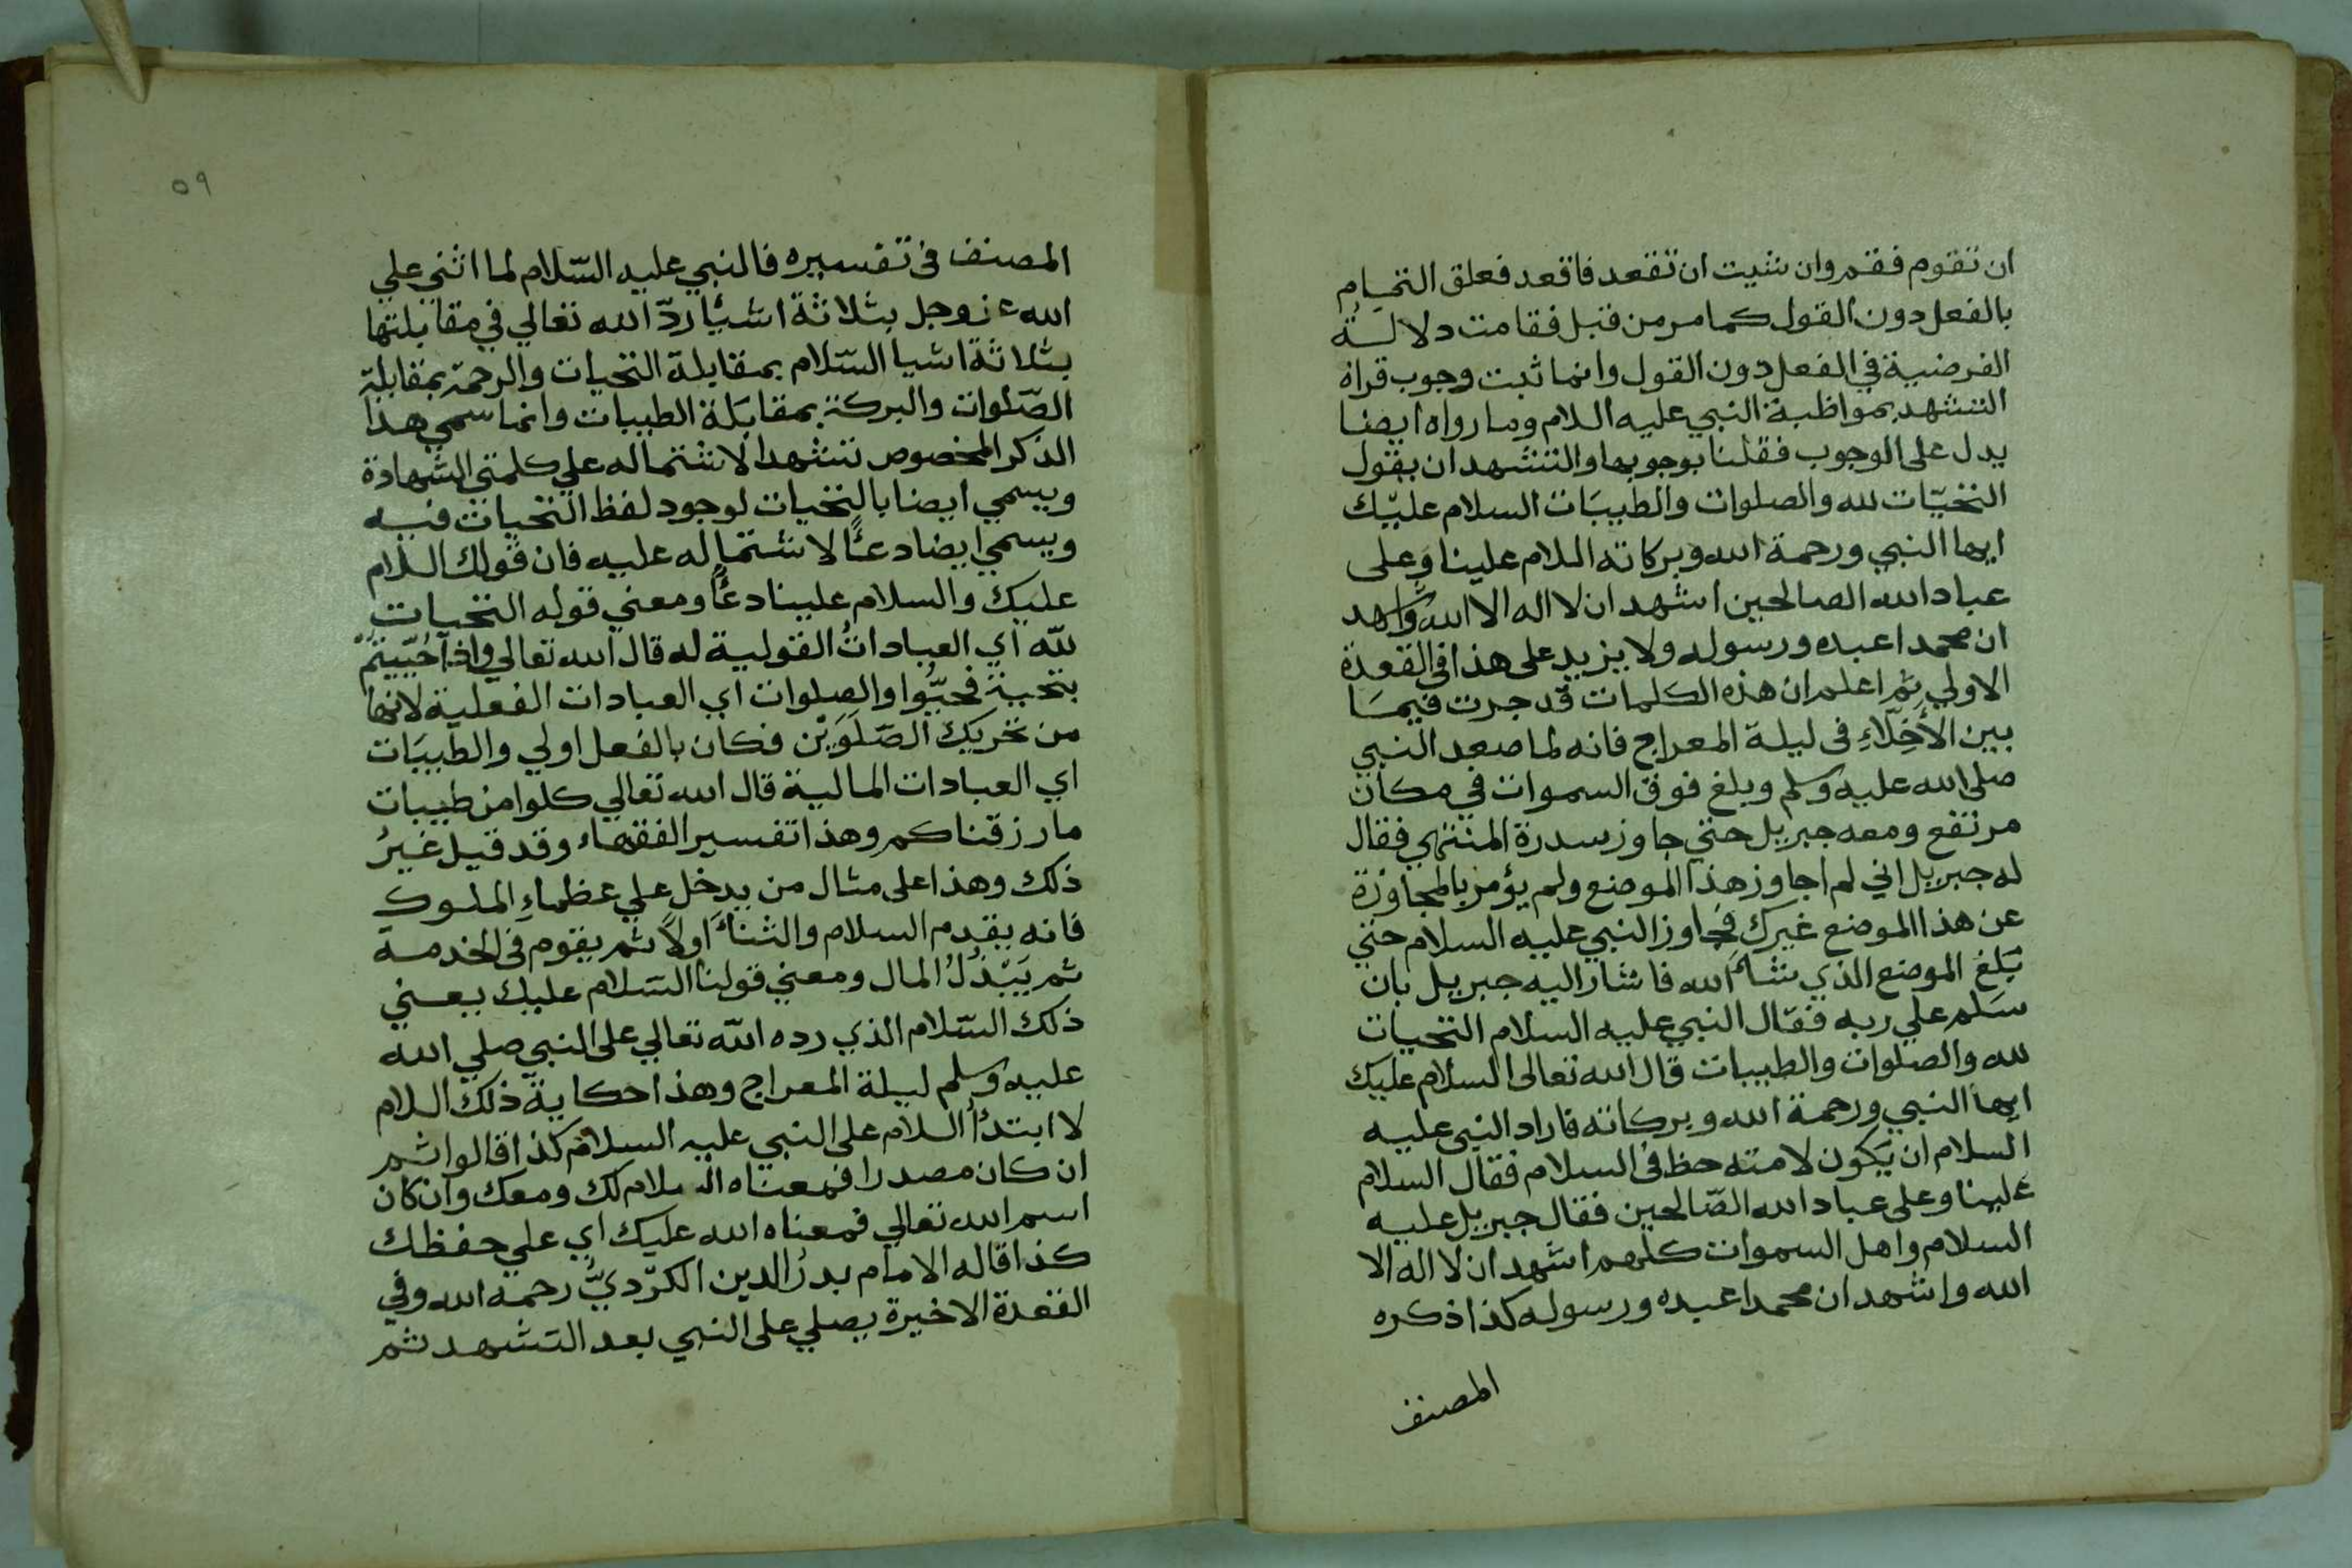 ان تقوم فقم وان شيت ان تقعد فاقعد فعلق التمام
بالفعل دون القول كما مر من قبل فقامت دلالة
الفرضية في الفعل دون القول وانما ثبت وجوب قراة
التشهد بمواظبة النبي عليه السلام وما رواه ايضا
يدل على الوجوب فقلنا بوجوبها والتشهد ان يقول
التحيّات لله والصلوات والطيبَات السلام عليك
ايها النبي ورحمة الله وبركاته السلام علينا وَعلى
عباد الله الصالحين اشهد ان لا اله الا الله واشهد
ان محمدا عبده ورسوله ولا يزيد على هذا في القعدة
الاولي ثم اعلم ان هذه الكلمات قد جرت فيمَا
بين الأَخِلّاءِ في ليلة المعراج فانه لما صعد النبي
صلى الله عليه وسلم وبلغ فوق السموات في مكان
مرتفع ومعه جبريل حتي جاوز سدرة المنتهي فقال
له جبريل اني لم اجاوز هذا الموضع ولم يؤمر بالمجاوزة
عن هذا الموضع غيرك فجاوز النبي عليه السلام حتي
بَلغ الموضع الذي شاءَ الله فاشار اليه جبريل بان
سَلم علي ربه فقال النبي عليه السلام التحيات
لله والصلوات والطيبات قال الله تعالى السلام عليك
ايها النبي ورحمة الله وبركاته فاراد النبي عليه
السلام ان يكون لامته حظ في السلام فقال السلام
علينا وعلى عباد الله الصّالحين فقال جبريل عليه
السلام واهل السموات كلهم اشهد ان لا اله الا
الله واشهد ان محمدا عبده ورسوله كذا ذكره
المصنف
٥٩
المصنف في تفسيره فالنبي عليه السّلام لما اثني علي
الله عز وجل بثلاثة اشيأ ردّ الله تعالي في مقابلتها
بثلاثة اشيا السّلام بمقابلة التحيات والرحمة بمقابلة
الصّلوات والبركة بمقابَلة الطيبات وانما سمي هذا
الذكر المخصوص تشهدا لاشتماله علي كلمتي الشهادة
ويسمي ايضا بالتحيات لوجود لفظ التحيات فيه
ويسمي ايضا دعأً لاشتماله عليه فان قولك السلام
عليك والسلام علينا دعأً ومعني قوله التحيات
للّه اي العبادات القولية له قال الله تعالي واذا حُيّيتمْ
بتحية فحيُّوا والصلوات اي العبادات الفعلية لانها
من تحريك الصّلَوَيْن فكان بالفعل اولي والطيبَات
اي العبادات المالية قال الله تعالي كلوا من طيبات
ما رزقناكم وهذا تفسير الفقهاء وقد قيل غيرُ
ذلك وهذا على مثال من يدخل علي عظماءِ الملوك
فانه يقدم السلام والثناءَ اولاً ثم يقوم في الخدمة
ثم يَبْذُلُ المال ومعني قولنا السّلام عليك يعني
ذلك السّلام الذي رده اللّه تعالي على النبي صلي الله
عليه وسلم ليلة المعراج وهذا حكاية ذلك السلام
لا ابتدأُ السلام على النبي عليه السلام كذا قالوا ثم
ان كان مصدرا فمعناه السلام لك ومعك وان كان
اسم الله تعالي فمعناه الله عليك اي علي حفظك
كذا قاله الامام بدرُ الدين الكرْديُّ رحمه الله وفي
القعدة الاخيرة يصلي على النبي بعد التشهد ثم